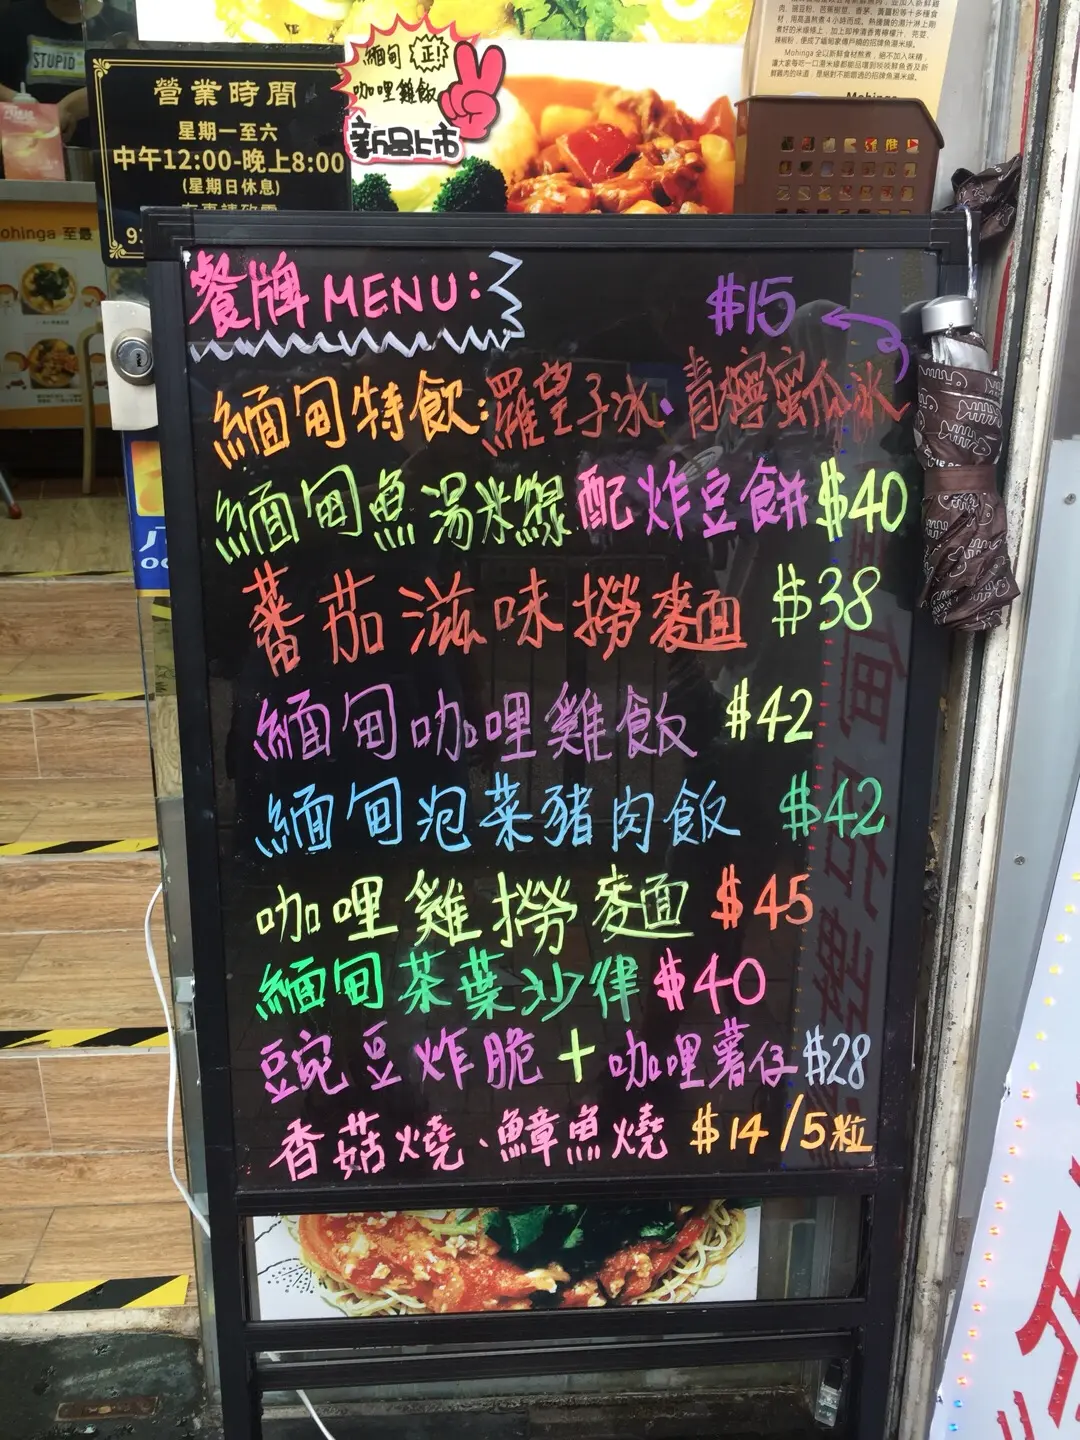 STUPID
營業時間
星期一至六
中午12:00-晚上8:00
(星期日休息)
緬甸 正!
咖哩雞飯
新品上市
Mohinga 全以新鮮食材熬煮，絕不加入味精，
Mohinga
餐牌 MENU:
$15
緬甸特飲:羅望子冰、青檸蜜瓜冰
緬甸魚湯米線配炸豆餅 $40
蕃茄滋味撈麵 $38
緬甸咖哩雞飯 $42
緬甸泡菜豬肉飯 $42
咖哩雞撈麵 $45
緬甸茶葉沙律 $40
豌豆炸脆 + 咖哩薯仔 $28
香菇燒、鱆魚燒 $14/5粒